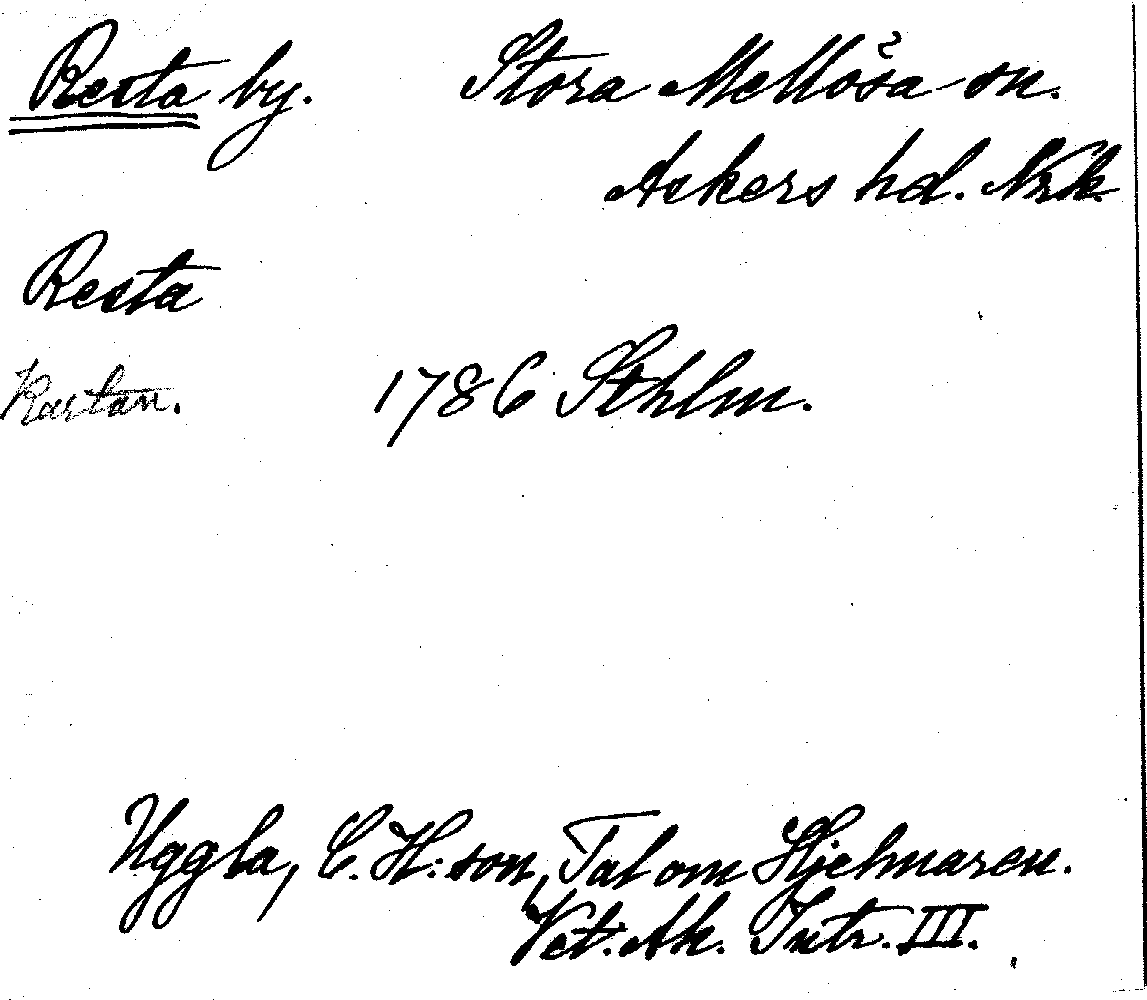 Resta by. Stora Mellösa sn.
Askers hd. Nrk.
Resta
Kartan. 1786 Sthlm.
Uggla, C. H:son, Tal om Hjelmaren.
Vet. Ak. Intr. III.